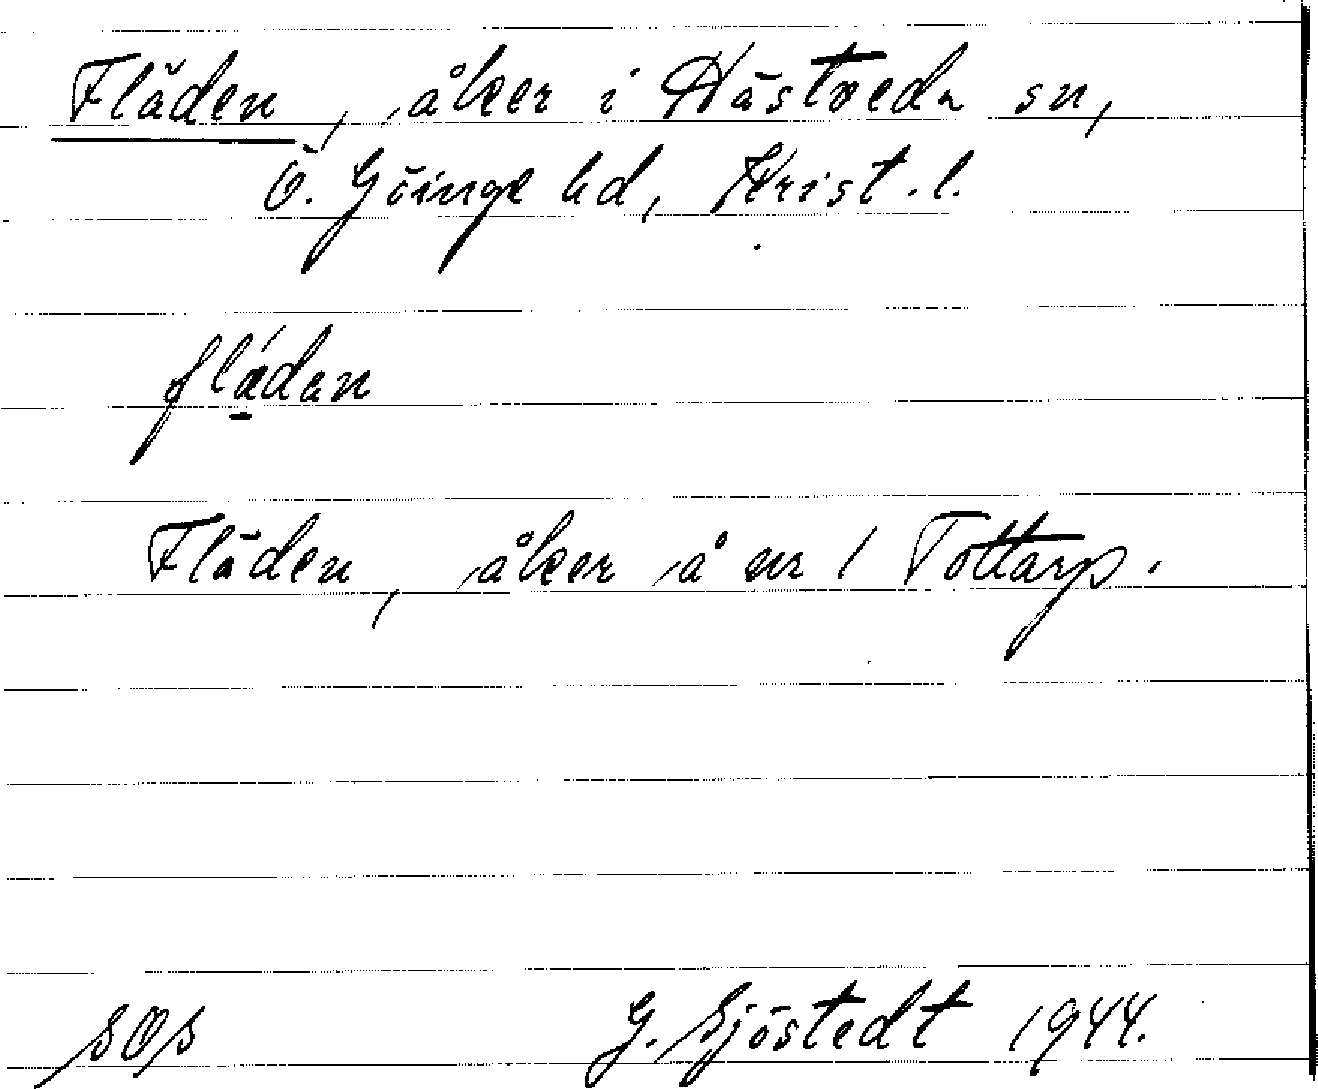 Fläden, åker i Hästveda sn,
Ö. Göinge hd, Krist. l.
flǽdan
Fläden, åker å nr 1 Tottarp.
SOS G. Sjöstedt 1944.